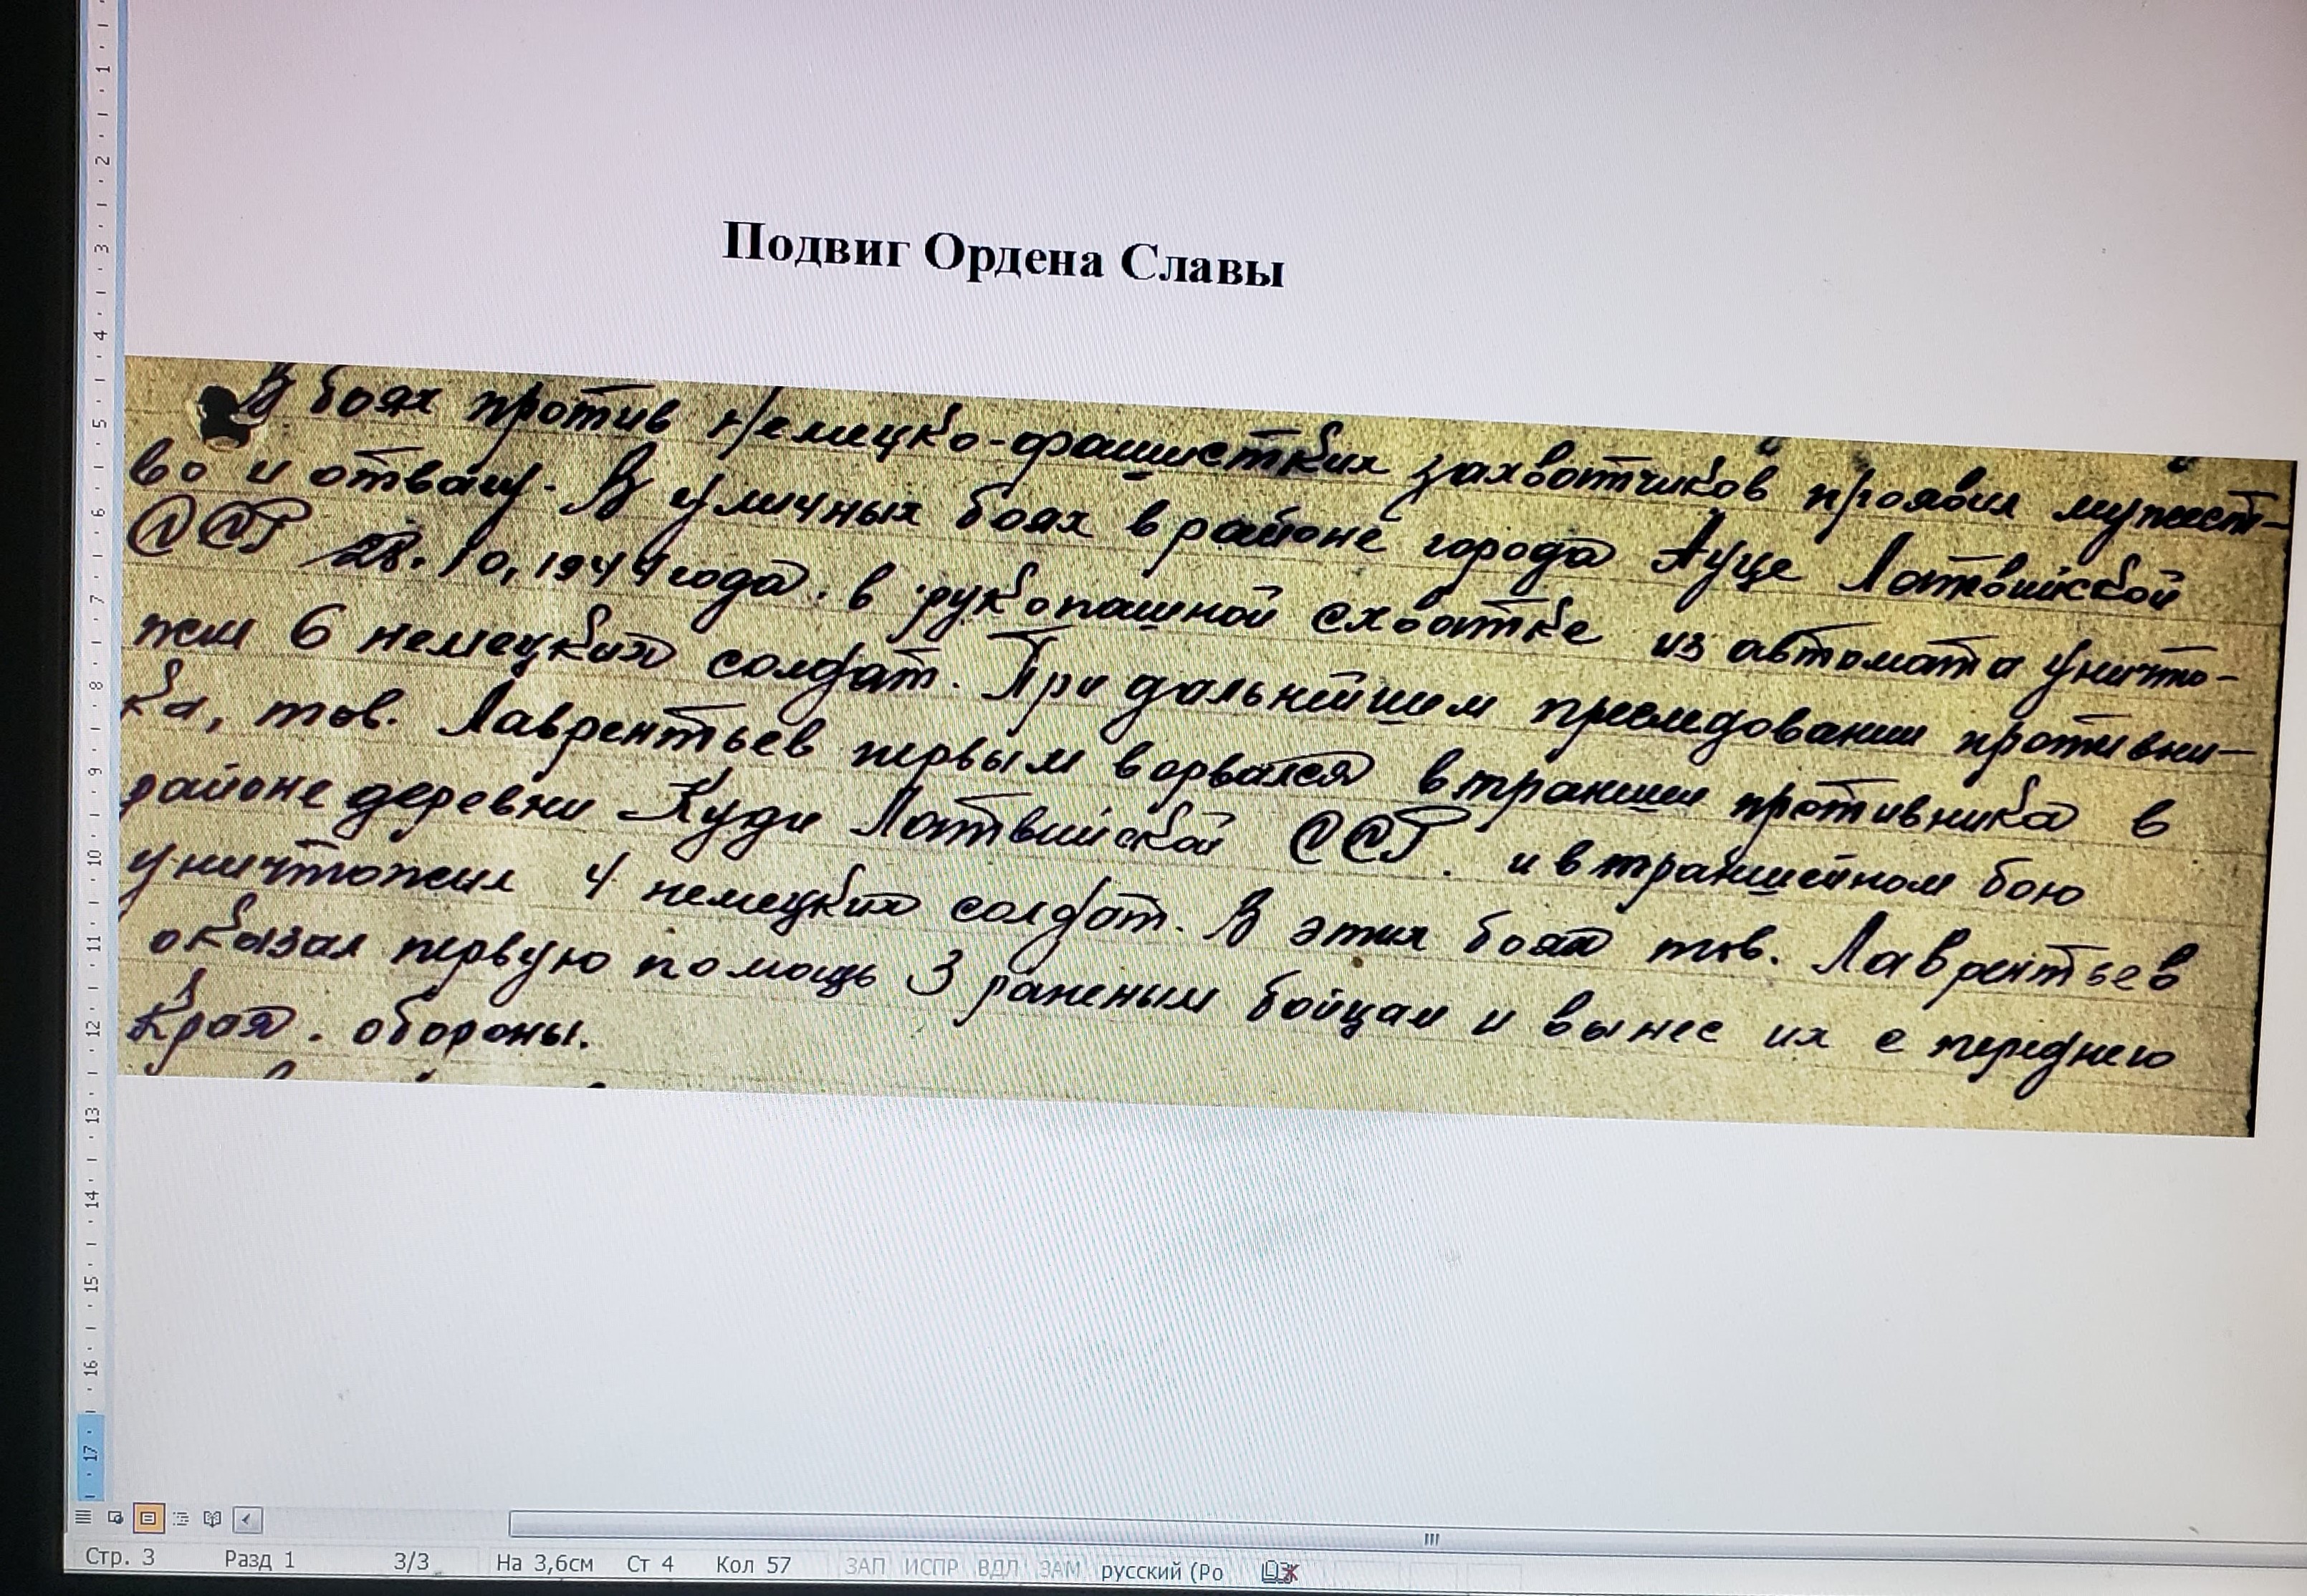 Подвиг Ордена Славы
В боях против немецко-фашистких захватчиков проявил мужест-
во и отвагу. В уличных боях в районе города Ауце Латвийской
ССР 28.10.1944 года. в рукопашной схватке из автомата уничто-
жил 6 немецких солдат. При дальнейшем преследовании противни-
ка, тов. Лаврентьев первым ворвался в траншеи противника в
районе деревни Куди Латвийской ССР. и в траншейном бою
уничтожил 4 немецких солдат. В этих боях тов. Лаврентьев
оказал первую помощь 3 раненым бойцам и вынес их с переднего
края. обороны.
Стр. 3 Разд 1 3/3 На 3,6см Ст 4 Кол 57 ЗАП ИСПР ВДЛ ЗАМ русский (Ро